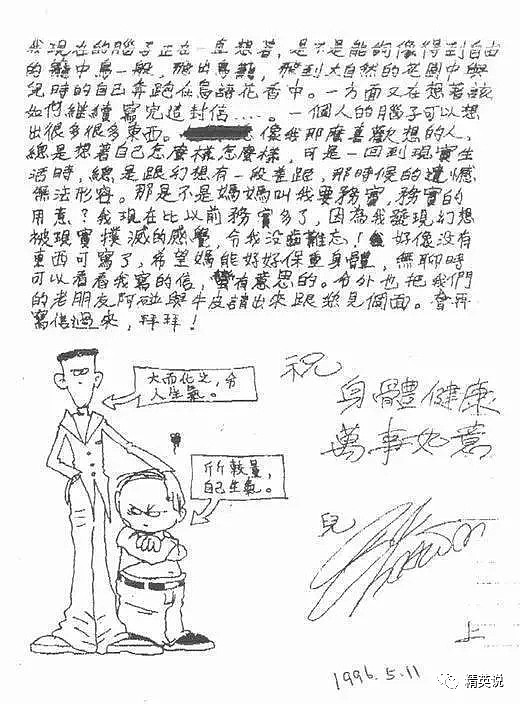 我現在的腦子正在一直想著，是不是能夠像得到自由
的籠中鳥一般，飛出鳥籠，飛到大自然的花園中與
兒時的自己奔跑在鳥語花香中。一方面又在想著該
如何繼續寫完這封信……。一個人的腦子可以想
出很多很多東西。像我那麼喜歡想的人，
總是想著自己怎麼樣怎麼樣，可是一回到現實生
活時，總是跟幻想有一段差距，那時候的遺憾
無法形容。那是不是媽媽叫我要務實，務實的
用意？我現在比以前務實多了，因為我發現幻想
被現實撲滅的感覺，令我沒齒難忘！好像沒有
東西可寫了，希望媽能好好保重身體，無聊時
可以看看我寫的信，蠻有意思的。令外也把我們
的老朋友阿碰與牛皮請出來跟您見個面。會再
寫信過來，拜拜！
大而化之，令
人生氣。
斤斤較量，
自己生氣。
祝
身體健康
萬事如意
兒
上
1996.5.11
精英说